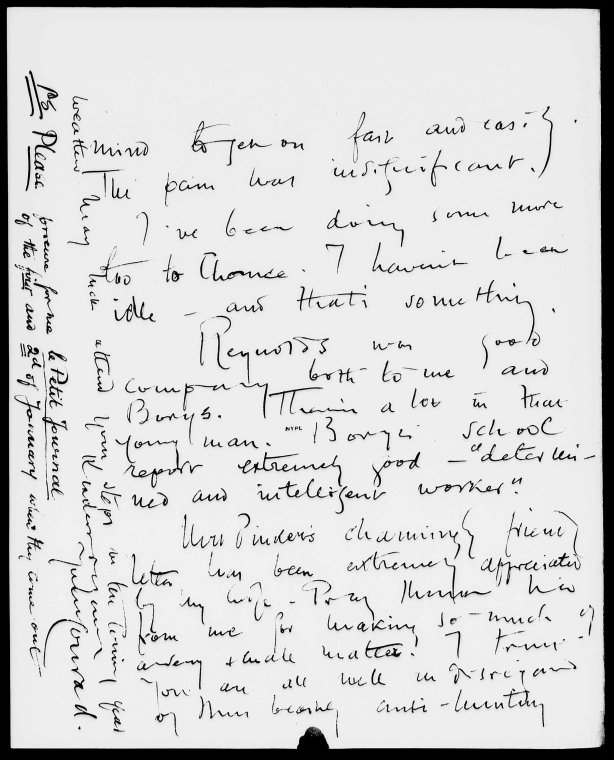 mind to get on fast and easy.
The pain was insignificant.)
I've been doing some more
too to Chance. I haven't been
idle – and that's something.
Reynolds was good
company both to me and
Borys. There's a lot in that
young man. Borys' school
NYPL
report extremely good – "determi-
ned and intelligent worker."
Mrs Pinder's charmingly friendly
letter has been extremely appreciated
by my wife. Pray thank her
from me for making so much of
a very small matter. I trust
You are all well in disregard
of this beastly anti-hunting
weather. May luck attend your steps in the coming year
Kindest regards
J. Conrad.
PS. Please procure for me le Petit Journal
of the first and 2d of January when they come out